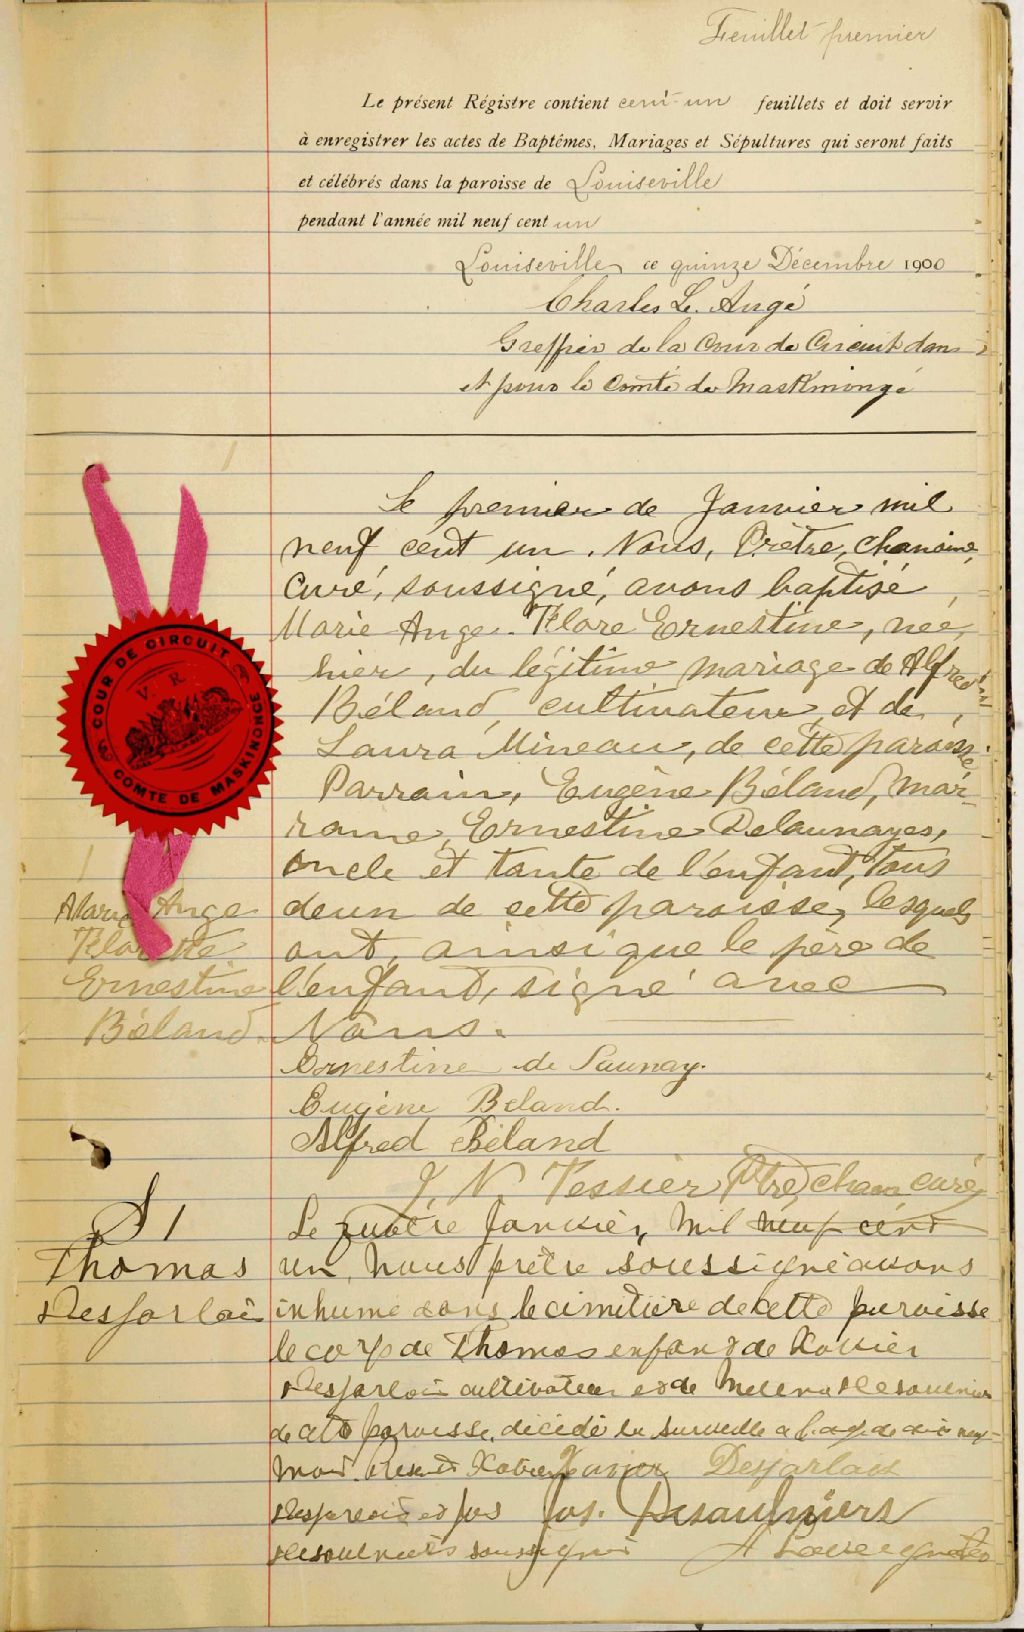 Feuillet premier
Le présent Régistre contient cent-un feuillets et doit servir
à enregistrer les actes de Baptêmes, Mariages et Sépultures qui seront faits
et célébrés dans la paroisse de Louiseville
pendant l'année mil neuf cent un
Louiseville, ce quinze Décembre 1900
Charles L. Augé
Greffier de la Cour de Circuit dans
et pour le Comté de Maskinongé
Le premier de Janvier mil
neuf cent un. Nous, Prêtre, chanoine,
Curé, soussigné, avons baptisé
Marie Ange Flore Ernestine, née,
hier, du légitime mariage de Alfred
Béland, cultivateur, et de
Laura Mineau, de cette paroisse.
Parrain, Eugène Béland, mar-
raine, Ernestine Delaunayes,
oncle et tante de l'enfant, tous
deux de cette paroisse, lesquels
ont, ainsi que le père de
l'enfant, signé avec
Nous.
Ernestine de Launay.
Eugène Beland.
Alfred Béland
J. N. Tessier Ptre, chan curé
COUR DE CIRCUIT
V R
COMTE DE MASKINONGE
Marie Ange
Ernestine
Béland
S 1
Thomas
Desjarlais
Le quatre Janvier, mil neuf cent
un, nous prêtre soussigné avons
inhumé dans le cimetière de cette paroisse
le corps de Thomas enfant de Xavier
Desjarlais cultivateur et de Desaulniers
de cette paroisse, décédé la surveille a l'age de
mois. Xavier Desjarlais
Desjarlais et Jos Jos. Desaulniers
Desaulniers soussignés